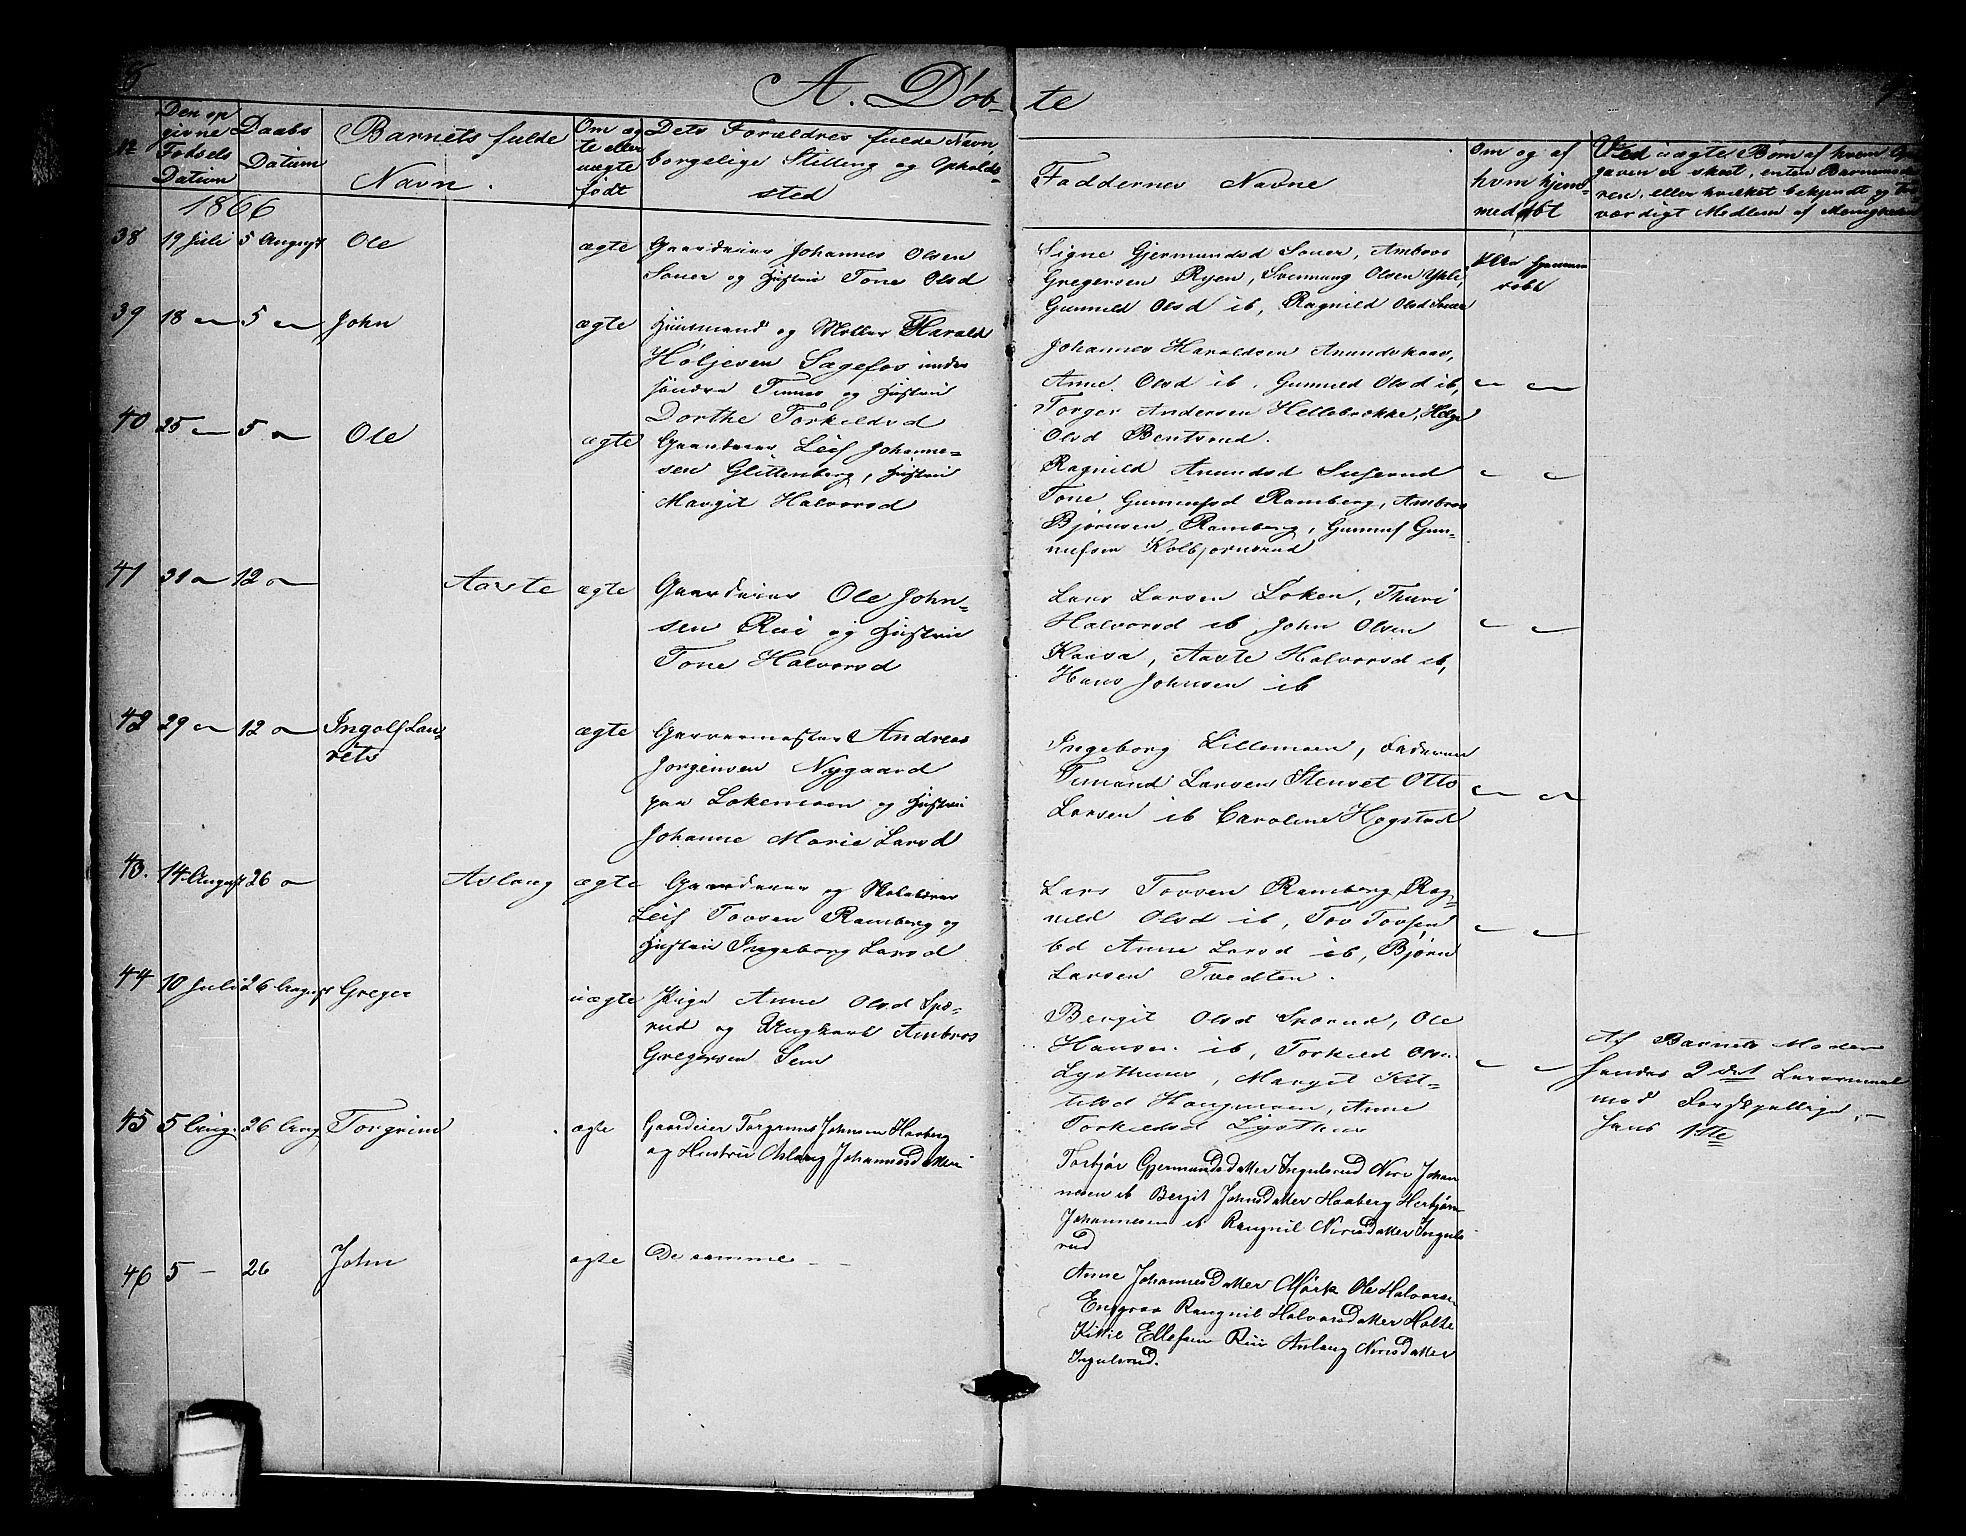 A. Døb- te
No
Den op
givne
Fødsels
Datum
Daabs
Datum
Barnets fulde
Navn.
Om æg
te eller
uægte
født
Dets Forældres fulde Navn,
borgelige Stilling og Opholds-
sted
Faddernes Navne
Om og af
hvem hjem-
medøbt
Ved uægte Børn af hvem Op-
gaven er skeet, enten Barnemode-
ren, eller hvilket bekjendt og tro-
værdigt Medlem af Menigheden
1866
38 19 Juli 5 August Ole ægte
Gaardeier Johannes Olsen
Souer og Hustrue Tone Olsd
Signe Gjermundsd Souer, Ambros
Gregersen Ryen, Svennung Olsen
Gunnild Olsd ib, Ragnild Olsd Souer
39 18 5 John ægte
Huusmand og Møller Harald
Holjesen Sagefos under
søndre Tinnes og Hustrue
Dorthe Torkildsd
Johannes Haraldsen
Anne Olsd ib, Gunnild Olsd ib,
Torger Andersen Hellebrække, Helge
Olsd Bentsrud.
40 25 5 Ole ægte
Gaardeier Leif Johanne-
sen Glittenberg, Hustrue
Margit Halvorsd
Ragnild Amundsd
Tone Gunnufsd Ramberg, Ambros
Bjørnsen Ramberg, Gunnuf Gun-
nufsen Kolbjørnsrud
41 31 12 Aaste ægte
Gaardeier Ole John-
sen Rui og Hustrue
Tone Halvorsd
Lars Larsen Loken, Thuri
Halvorsd ib John Olsen
Kaasa, Aaste Halvorsd ib,
Hans Johnsen ib
42 29 12 Ingolf Lau-
rits ægte
Garvermester Andreas
Jorgensen Nygaard
paa Lokemoen og Hustrue
Johanne Marie Larsd
Ingeborg Lillemoen, Faderen
Larsen Stenset Otto
Larsen ib Caroline Hogstad
43. 14 August 26 Aslaug ægte
Gaardeier og Skolelærer
Leif Tovsen Ramberg og
Hustrue Ingeborg Larsd
Lars Tovsen Ramberg, Rag-
nild Olsd ib, Tov Tovsen
Anne Larsd ib, Bjørn
Larsen Tvedten.
44 10 Juli 26 August Greger uægte
Pige Anne Olsd Spæ-
rud og Ungkarl Ambros
Gregersen Sem
Bergit Olsd Spærud, Ole
Hansen ib, Torkild Olsen
Lysthuus, Margit Kit-
tilsd Haugmoen, Anne
Torkildsd Lysthuus
Af Barnets Moder
hendes 2det Leiermaal
med Forskjellige.
hans 1ste
45 5 Aug. 26 Aug Torgrim ægte
Gaardeier Torgrims Johnsen Haaberg
og Hustrue Aslaug Johannesdatter
Torbjør Gjermundsdatter Ingulsrud Nirs Johan
nesen ib Bergit Johnsdatter Haaberg Herbjørn
Johannesen ib Rangnil Nirisdatter Inguls
rud
46 5 - 26 John ægte
De samme
Anne Johannesdatter Mørk Ole Halvorsen
Rangnil Halvorsdatter Holte
Kittil Ellefsen Rui Aslaug Nirisdatter
Ingulsrud.